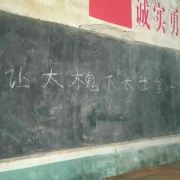 诚实勇
让大槐下长出金